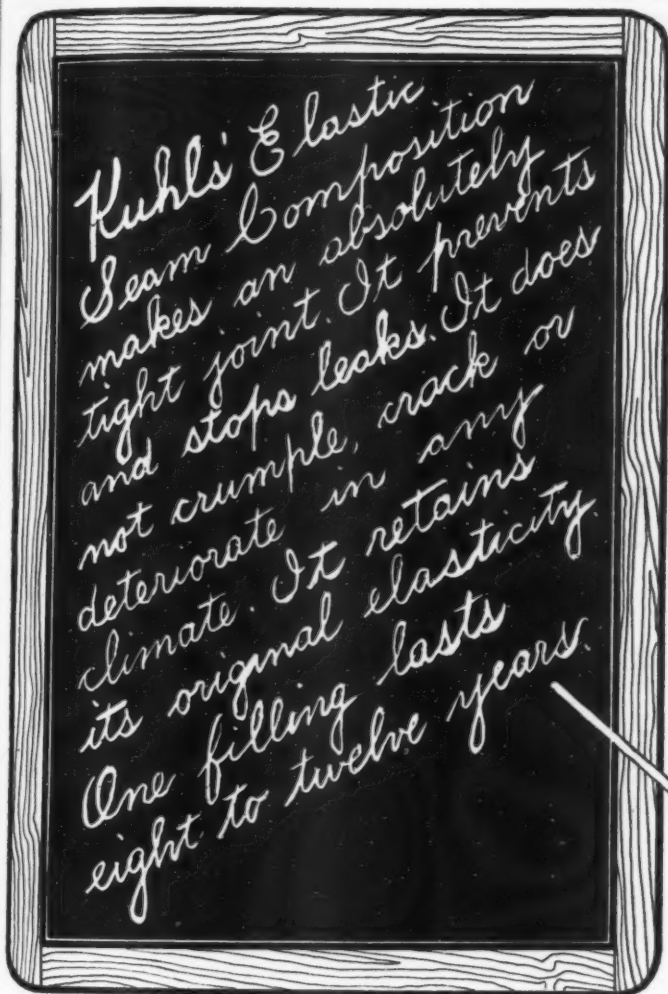 Kuhls' Elastic
Seam Composition
makes an absolutely
tight joint. It prevents
and stops leaks. It does
not crumple, crack or
deteriorate in any
climate. It retains
its original elasticity.
One filling lasts
eight to twelve years.